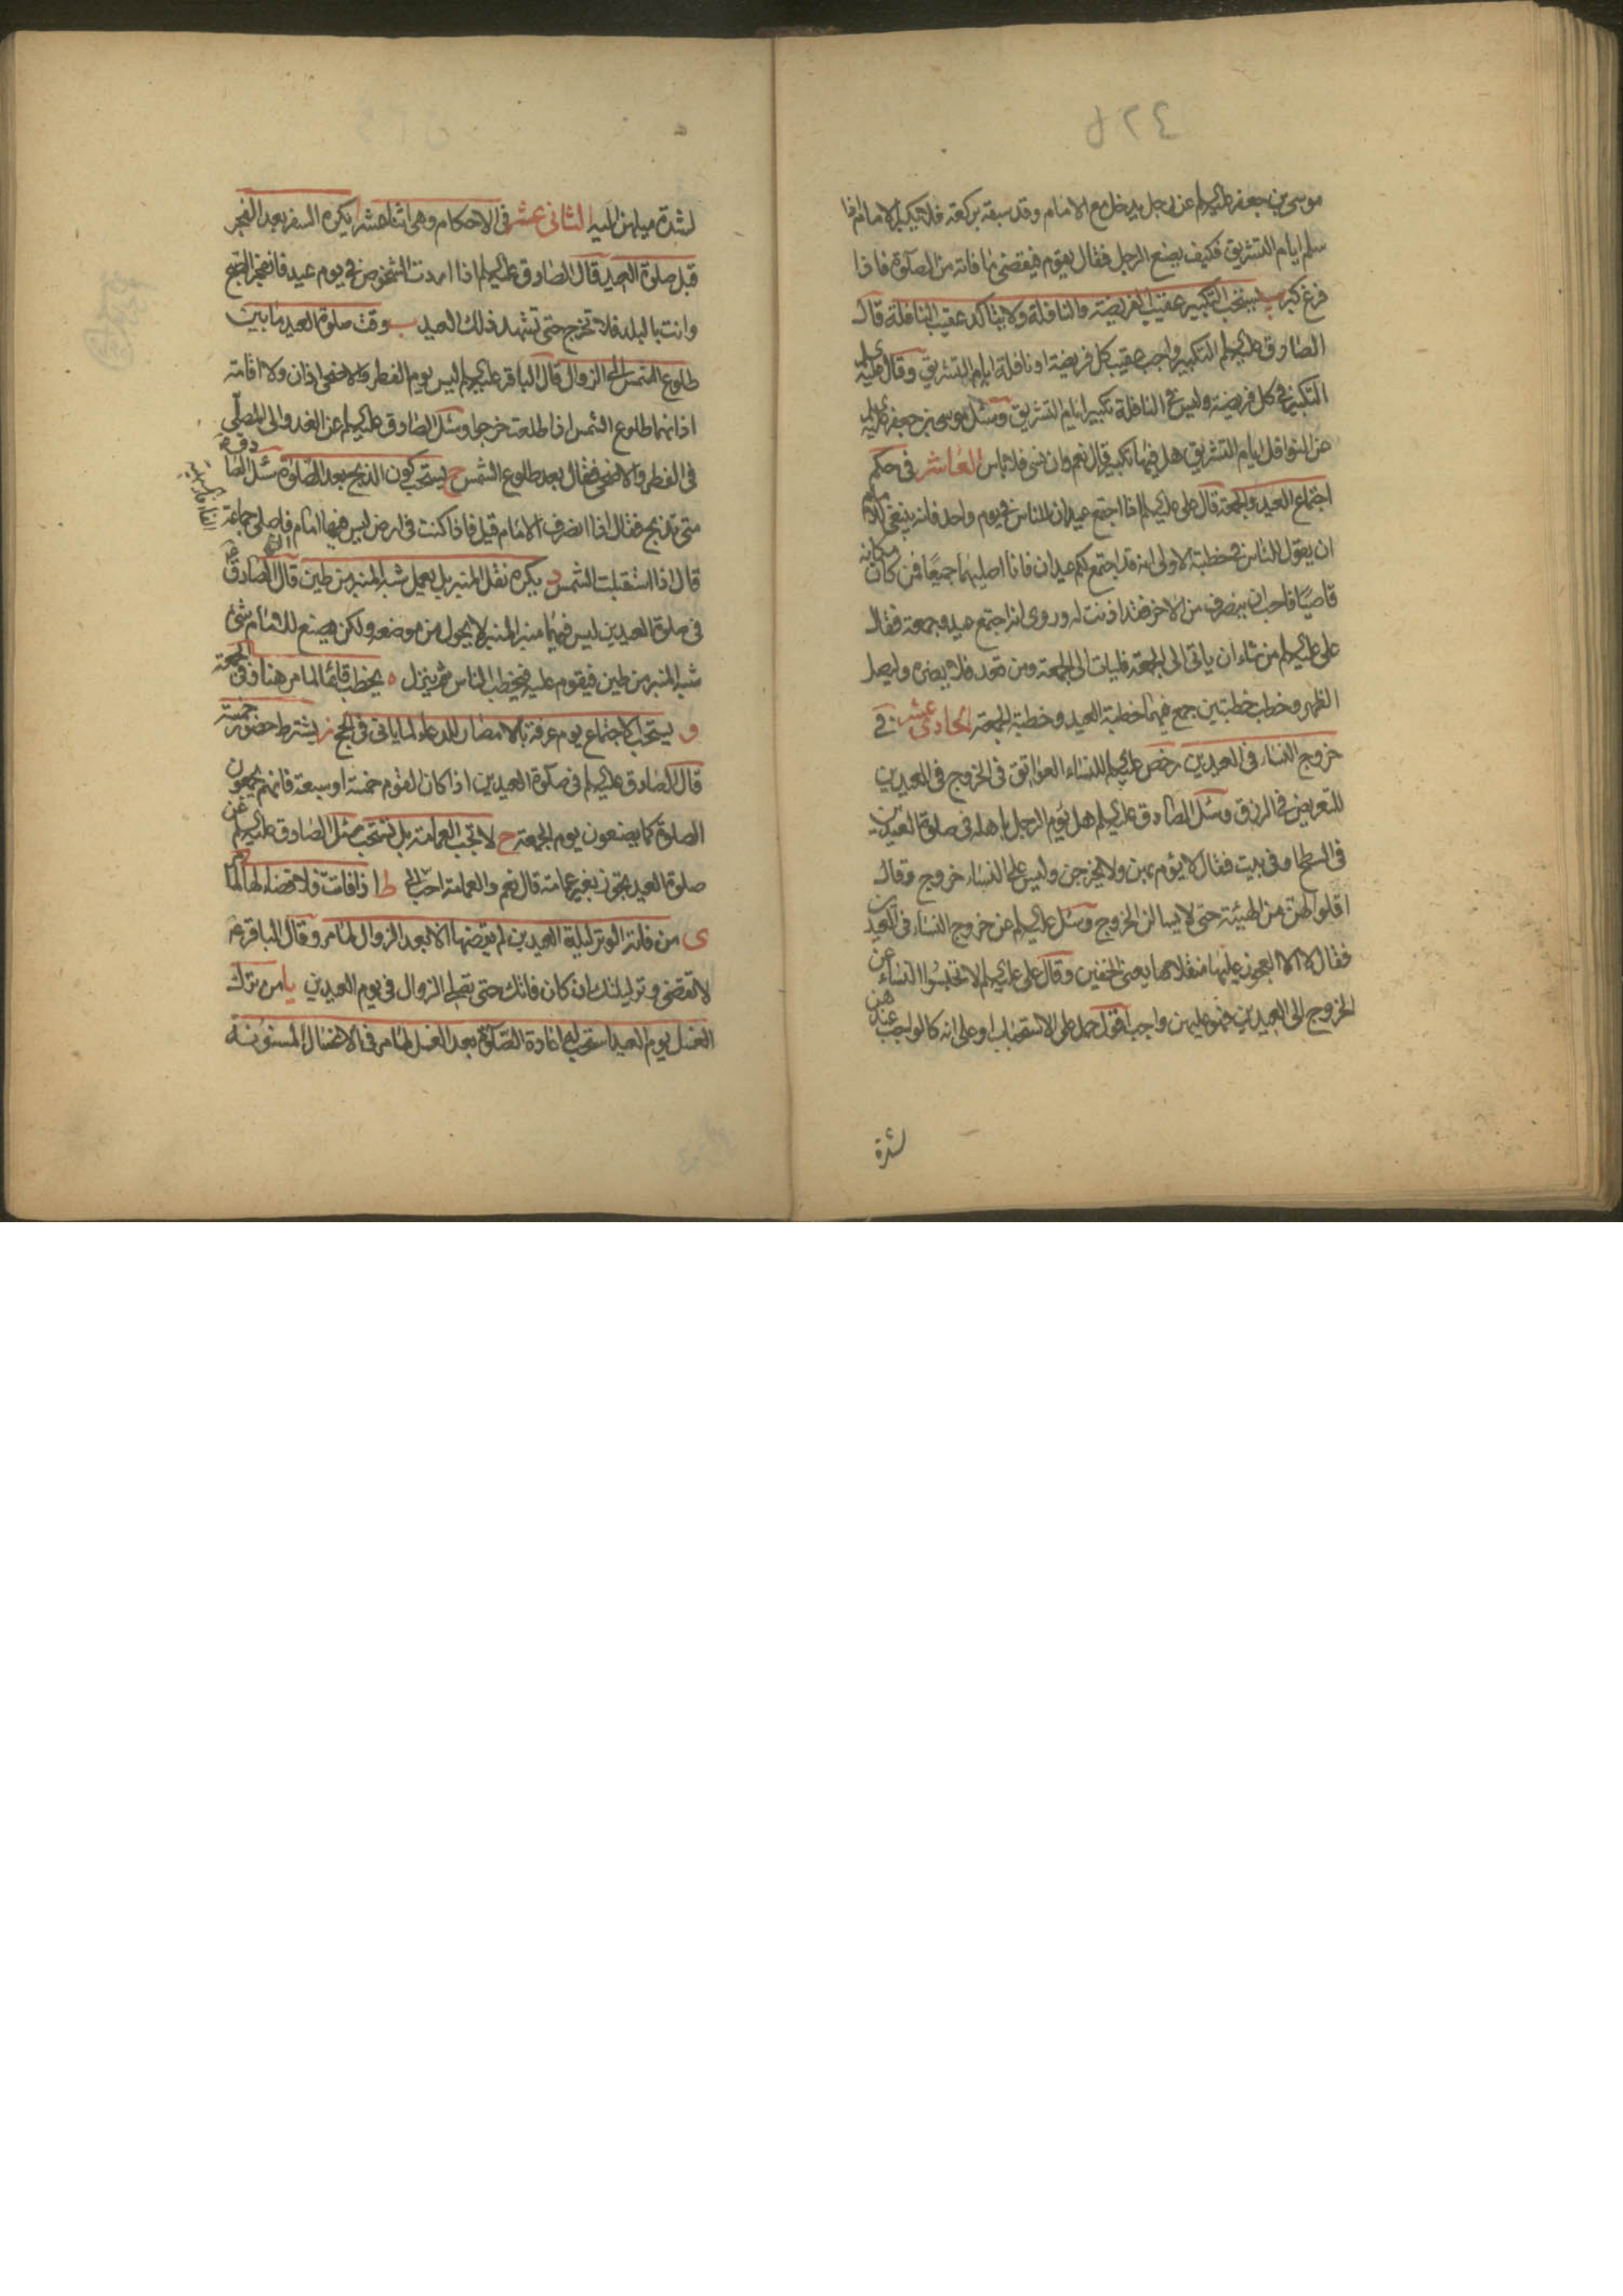 موسى بن جعفر عليه السلام عن رجل يدخل مع الامام وقد سبقه بركعة فلا يكبر الامام اذا
سلم ايام التشريق فكيف يصنع الرجل فقال يقوم فيقضى ما فاته من الصلوة فاذا
فرغ كبر ب يستحب التكبير عقيب الفريضة والنافلة ولا يتأكد عقيب النافلة قال
الصادق عليه السلم التكبير واجب عقيب كل فريضة او نافلة ايام التشريق وقال عليه
التكبير فى كل فريضة وليس فى النافلة تكبير ايام التشريق وسئل موسى بن جعفر عليه
عن النوافل ايام التشريق هل فيها تكبير قال نعم وان نسى فلا باس العاشر فى حكم
اجتماع العيد والجمعة قال على عليه السلم اذا اجتمع عيدان للناس فى يوم واحد فانه ينبغى للامام
ان يقول للناس فى خطبته الاولى انه قد اجتمع لكم عيدان فانا اصليهما جميعا فمن كان مكانه
قاصيا فاحب ان ينصرف من الاخر فقد اذنت له وروى انه اجتمع عيد وجمعة فقال
على عليه السلم من شاء ان ياتى الى الجمعة فليات الى الجمعة ومن قعد فلا يضره وليصل
الظهر وخطب خطبتين جمع فيهما خطبة العيد وخطبة الجمعة الحادى عشر فى
خروج النساء فى العيدين رخص عليه السلم للنساء العواتق فى الخروج فى العيدين
للتعريض فى الرزق وسئل الصادق عليه السلم هل يؤم الرجل باهله فى صلوة العيدين
فى السطح او فى بيت فقال لا يؤم بهن ولا يخرجن وليس على النساء خروج وقال
اقلوا لهن من الهيئة حتى لا يسالن الخروج وسئل عليه السلم عن خروج النساء فى العيدين
فقال لا الا العجوز عليها منقلاها يعنى الخفين وقال على عليه السلم لا تحبسوا النساء عن
الخروج الى العيدين فهو عليهن واجب اقول حمل على الاستحباب او على انه كالواجب عندهن
لشدة
لشدة ميلهن اليه الثانى عشر فى الاحكام وهى اثنا عشر ا يكره السفر بعد الفجر
قبل صلوة العيد قال الصادق عليه السلم اذا اردت الشخوص فى يوم عيد فانفجر الصبح
وانت بالبلد فلا تخرج حتى تشهد ذلك العيد ب وقت صلوة العيد ما بين
طلوع الشمس الى الزوال قال الباقر عليه السلم ليس يوم الفطر والاضحى اذان ولا اقامة
اذانهما طلوع الشمس اذا طلعت خرجوا وسئل الصادق عليه السلم عن الغدو الى المصلى
فى الفطر والاضحى فقال بعد طلوع الشمس ج يستحب كون الذبح بعد الصلوة سئل الصادق ع
متى نذبح فقال اذا انصرف الامام قيل فاذا كنت فى ارض ليس فيها امام فاصلى جماعة
قال اذا استقبلت الشمس د يكره نقل المنبر بل يعمل شبه المنبر من طين قال الصادق ع
فى صلوة العيدين ليس فيهما منبر المنبر لا يحول من موضعه ولكن يصنع للامام شئ
شبه المنبر من طين فيقوم عليه فيخطب الناس ثم ينزل ه يخطب قائما لما مر هنا وفى الجمعة
و يستحب الاجتماع يوم عرفة بالامصار للدعاء لما ياتى فى الحج ز يشترط حضور خمسة
قال الصادق عليه السلم فى صلوة العيدين اذا كان القوم خمسة او سبعة فانهم يجمعون
الصلوة كما يصنعون يوم الجمعة ح لا تجب العمامة بل تستحب سئل الصادق عليه السلم عن
صلوة العيد يجوز بغير عمامة قال نعم والعمامة احب الى ط اذا فاتت فلا قضاء لها لما مر
ى من فاته الوتر ليلة العيدين لم يقضها الا بعد الزوال لما مر وقال الباقر ع
لا تقضى وتر ليلتك ان كان فاتك حتى تصلى الزوال فى يوم العيدين يا من ترك
الغسل يوم العيد استحب له اعادة الصلوة بعد الغسل لما مر فى الاغسال المسنونة